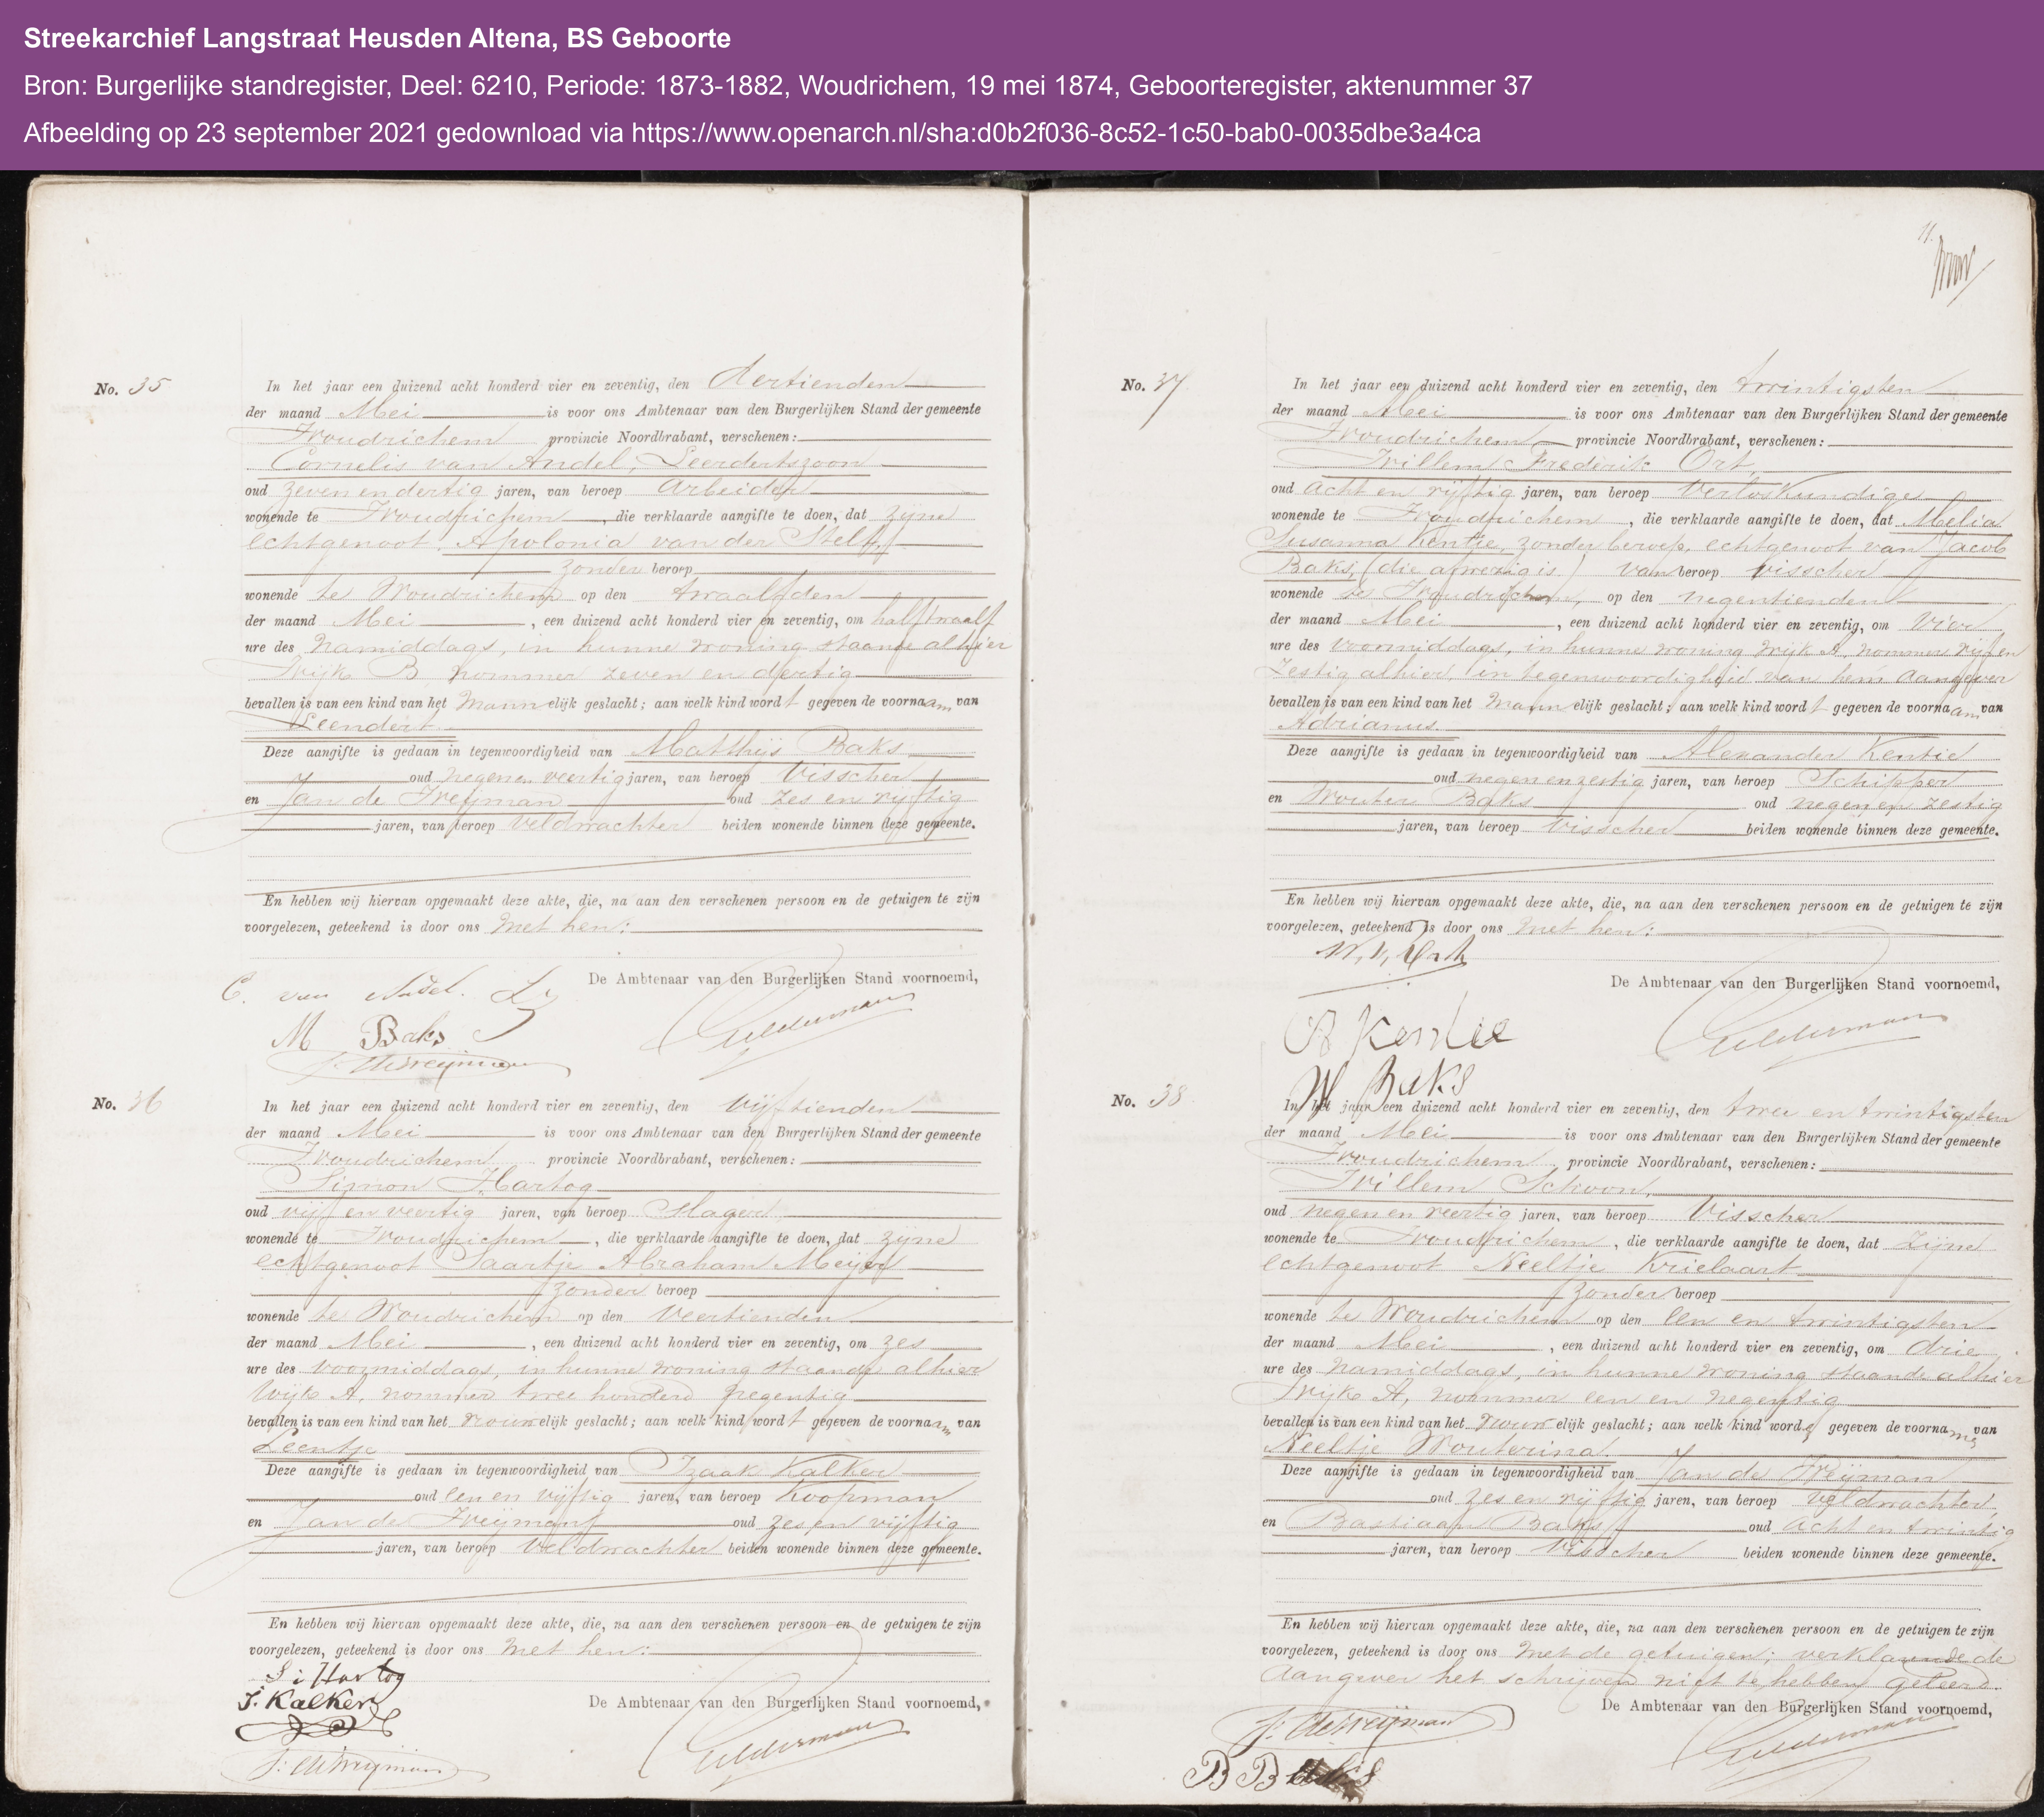 Streekarchief Langstraat Heusden Altena, BS Geboorte
Bron: Burgerlijke standregister, Deel: 6210, Periode: 1873-1882, Woudrichem, 19 mei 1874, Geboorteregister, aktenummer 37
Afbeelding op 23 september 2021 gedownload via https://www.openarch.nl/sha:d0b2f036-8c52-1c50-bab0-0035dbe3a4ca
No. 35
In het jaar een duizend acht honderd vier en zeventig, den dertienden
der maand Mei is voor ons Ambtenaar van den Burgerlijken Stand der gemeente
Woudrichem provincie Noordbrabant, verschenen:
Cornelis van Andel, Leerdertszoon
oud zeven en dertig jaren, van beroep Arbeider
wonende te Woudrichem, die verklaarde aangifte te doen, dat zijne
echtgenoot Apolonia van der Stelt,
zonder beroep
wonende te Woudrichem op den twaalfden
der maand Mei, een duizend acht honderd vier en zeventig, om half twaalf
ure des namiddags, in hunne woning staande alhier
Wijk B, nommer zeven en dertig
bevallen is van een kind van het Mannelijk geslacht; aan welk kind wordt gegeven de voornaam van
Leendert
Deze aangifte is gedaan in tegenwoordigheid van Matthijs Baks
oud negen en veertig jaren, van beroep Visscher
en Jan de Weijman oud zes en vijftig
jaren, van beroep Veldwachter beiden wonende binnen deze gemeente.
En hebben wij hiervan opgemaakt deze akte, die, na aan den verschenen persoon en de getuigen te zijn
voorgelezen, geteekend is door ons met hen:
De Ambtenaar van den Burgerlijken Stand voornoemd,
C. van Andel. Lz
M Baks
J. de Weijman
Gelderman
No. 36
In het jaar een duizend acht honderd vier en zeventig, den vijftienden
der maand Mei is voor ons Ambtenaar van den Burgerlijken Stand der gemeente
Woudrichem provincie Noordbrabant, verschenen:
Simon Hartog
oud vijf en veertig jaren, van beroep Slager
wonende te Woudrichem, die verklaarde aangifte te doen, dat zijne
echtgenoot Saartje Abraham Meijer
zonder beroep
wonende te Woudrichem op den veertienden
der maand Mei, een duizend acht honderd vier en zeventig, om zes
ure des voormiddags, in hunne woning staande alhier
Wijk A, nommer twee honderd negentig
bevallen is van een kind van het vrouwelijk geslacht; aan welk kind wordt gegeven de voornaam van
Leentje
Deze aangifte is gedaan in tegenwoordigheid van Izaak Kalker
oud een en vijftig jaren, van beroep Koopman
en Jan de Weijman oud zes en vijftig
jaren, van beroep Veldwachter beiden wonende binnen deze gemeente.
En hebben wij hiervan opgemaakt deze akte, die, na aan den verschenen persoon en de getuigen te zijn
voorgelezen, geteekend is door ons met hen:
S i Hartog
J. Kalker
De Ambtenaar van den Burgerlijken Stand voornoemd,
J. de Weijman
Gelderman
11.
No. 37
In het jaar een duizend acht honderd vier en zeventig, den twintigsten
der maand Mei is voor ons Ambtenaar van den Burgerlijken Stand der gemeente
Woudrichem, provincie Noordbrabant, verschenen:
Willem Frederik Ort,
oud acht en vijftig jaren, van beroep Verloskundige
wonende te Woudrichem, die verklaarde aangifte te doen, dat Melia
Susanna Kentie, zonder beroep, echtgenoot van Jacob
Baks, (die afwezig is) van beroep visscher
wonende te Woudrichem, op den negentienden
der maand Mei, een duizend acht honderd vier en zeventig, om Vier
ure des voormiddags, in hunne woning Wijk A, nommer vijf en
Zestig alhier, in tegenwoordigheid van hem aangever
bevallen is van een kind van het Mannelijk geslacht; aan welk kind wordt gegeven de voornaam van
Adrianus.
Deze aangifte is gedaan in tegenwoordigheid van Alexander Kentie
oud negen en zestig jaren, van beroep Schipper
en Wouter Baks oud negen en zestig
jaren, van beroep Visscher beiden wonende binnen deze gemeente.
En hebben wij hiervan opgemaakt deze akte, die, na aan den verschenen persoon en de getuigen te zijn
voorgelezen, geteekend is door ons met hen:
W. F. Ort
De Ambtenaar van den Burgerlijken Stand voornoemd,
A Kentie
Gelderman
W Baks
No. 38
In het jaar een duizend acht honderd vier en zeventig, den twee en twintigsten
der maand Mei is voor ons Ambtenaar van den Burgerlijken Stand der gemeente
Woudrichem, provincie Noordbrabant, verschenen:
Willem Schoon,
oud negen en veertig jaren, van beroep Visscher
wonende te Woudrichem, die verklaarde aangifte te doen, dat zijne
echtgenoot Neeltje Krielaart
zonder beroep
wonende te Woudrichem op den een en twintigsten
der maand Mei, een duizend acht honderd vier en zeventig, om drie
ure des namiddags, in hunne woning staande alhier
Wijk A, nommer een en negentig
bevallen is van een kind van het vrouwelijk geslacht; aan welk kind words gegeven de voornames van
Neeltje Wouterina
Deze aangifte is gedaan in tegenwoordigheid van Jan de Weijman
oud zes en vijftig jaren, van beroep Veldwachter
en Bastiaan Baks oud acht en twintig
jaren, van beroep Visscher beiden wonende binnen deze gemeente.
En hebben wij hiervan opgemaakt deze akte, die, na aan den verschenen persoon en de getuigen te zijn
voorgelezen, geteekend is door ons met de getuigen; verklarende de
aangever het schrijven niet te hebben geleerd.
De Ambtenaar van den Burgerlijken Stand voornoemd,
J. de Weijman
Gelderman
B Baks